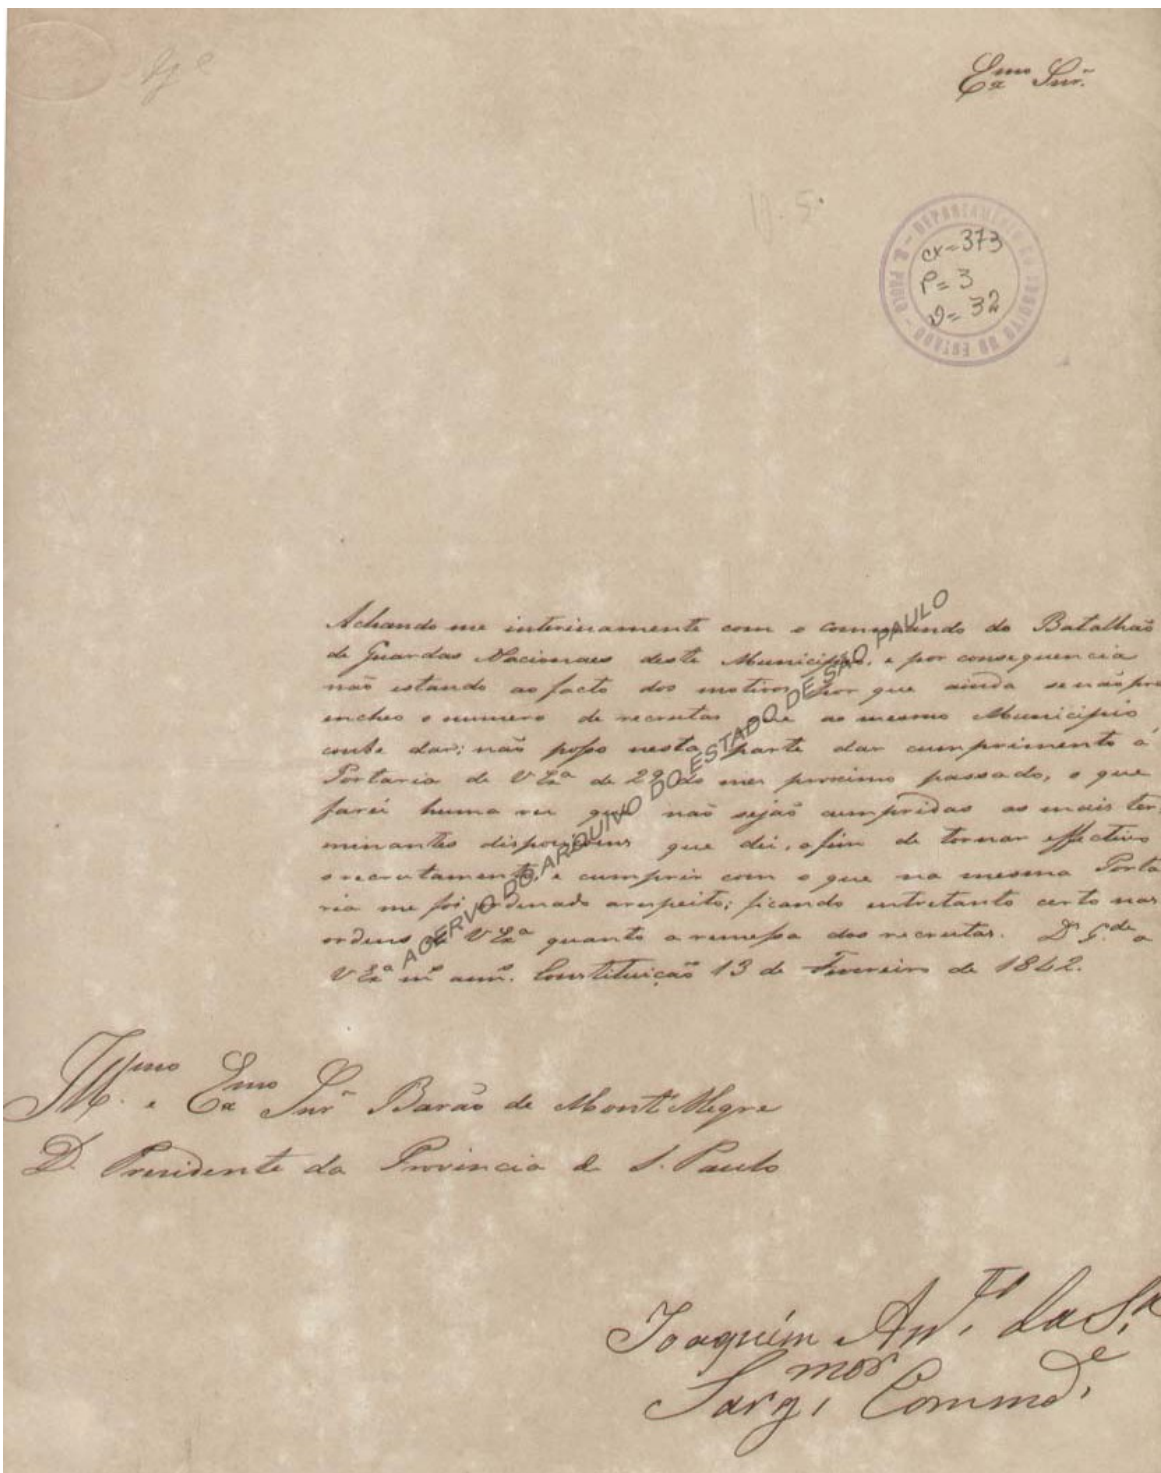 Exmo Snr.
DEPARTAMENTO DO ARQUIVO DO ESTADO - S. PAULO -
cx=373
P=3
D=32
Achando me interinamente com o commando do Batalhão
de Guardas Nacionaes deste Municipio, e por consequencia
não estando ao facto dos motivos por que ainda senão pre
encheo o numero de recrutas que ao mesmo Municipio
coube dar; não posso nesta parte dar cumprimento á
Portaria de V Exa de 22 do mez proximo passado, o que
farei huma vez que não sejão cumpridas as mais ter
minantes disposiçoens que dei, afim de tornar effectivo
o recrutamento, e cumprir com o que na mesma Porta
ria me foi ordenado arespeito; ficando entretanto certo nas
ordens de V Exa quanto a remessa dos recrutas. D G.de a
V Exa ms anns. Constituição 13 de Fevereiro de 1842.
ACERVO DO ARQUIVO DO ESTADO DE SÃO PAULO
Illmo. e Exmo Snr Barão de Mont'Alegre
D. Presidente da Provincia de S. Paulo
Joaquim Anto. da Sa.
Sargmor. Commde.